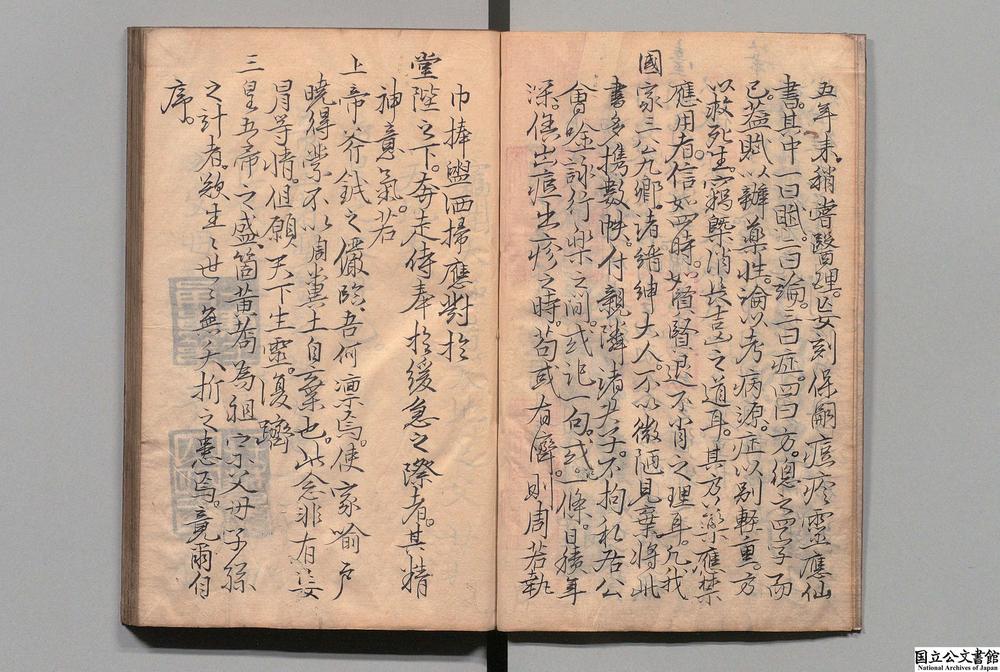 五年来。稍嘗醫理。妄刻保嗣痘疹靈應仙
書。其中一曰賦。二曰論。三曰症。四曰方。總之四字而
已。蓋賦以辨藥性。論以考病源。症以別輕重。方
以救死生。寫槩消長吉凶之道耳。其方藥應禁
應用者。信如四時。如賢賢退不肖之理耳。凡我
國家三公九卿。諸縉紳大人。不以微陋見棄。將此
書多携數帙。付親隣諸共子。不拘私居公
會吟詠行樂之間。或記一句。或一條。日積年
深。倘出痘出疹之時。苟或有儕。則周若執
巾捧盥洒掃應對於
堂陛之下。奔走侍奉於緩急之際者。其精
神意氣。若
上帝斧鉞之儼臨。吾何凛焉。使家喻戶
曉得業不以周糞土自棄也。此念非有妄
冐等情。但願天下生靈。復躋
三皇五帝之盛。箇黃耈為祖宗父母子孫
之計者。欲生生世世無夭折之患焉。竟爾自
序。
国立公文書館
National Archives of Japan